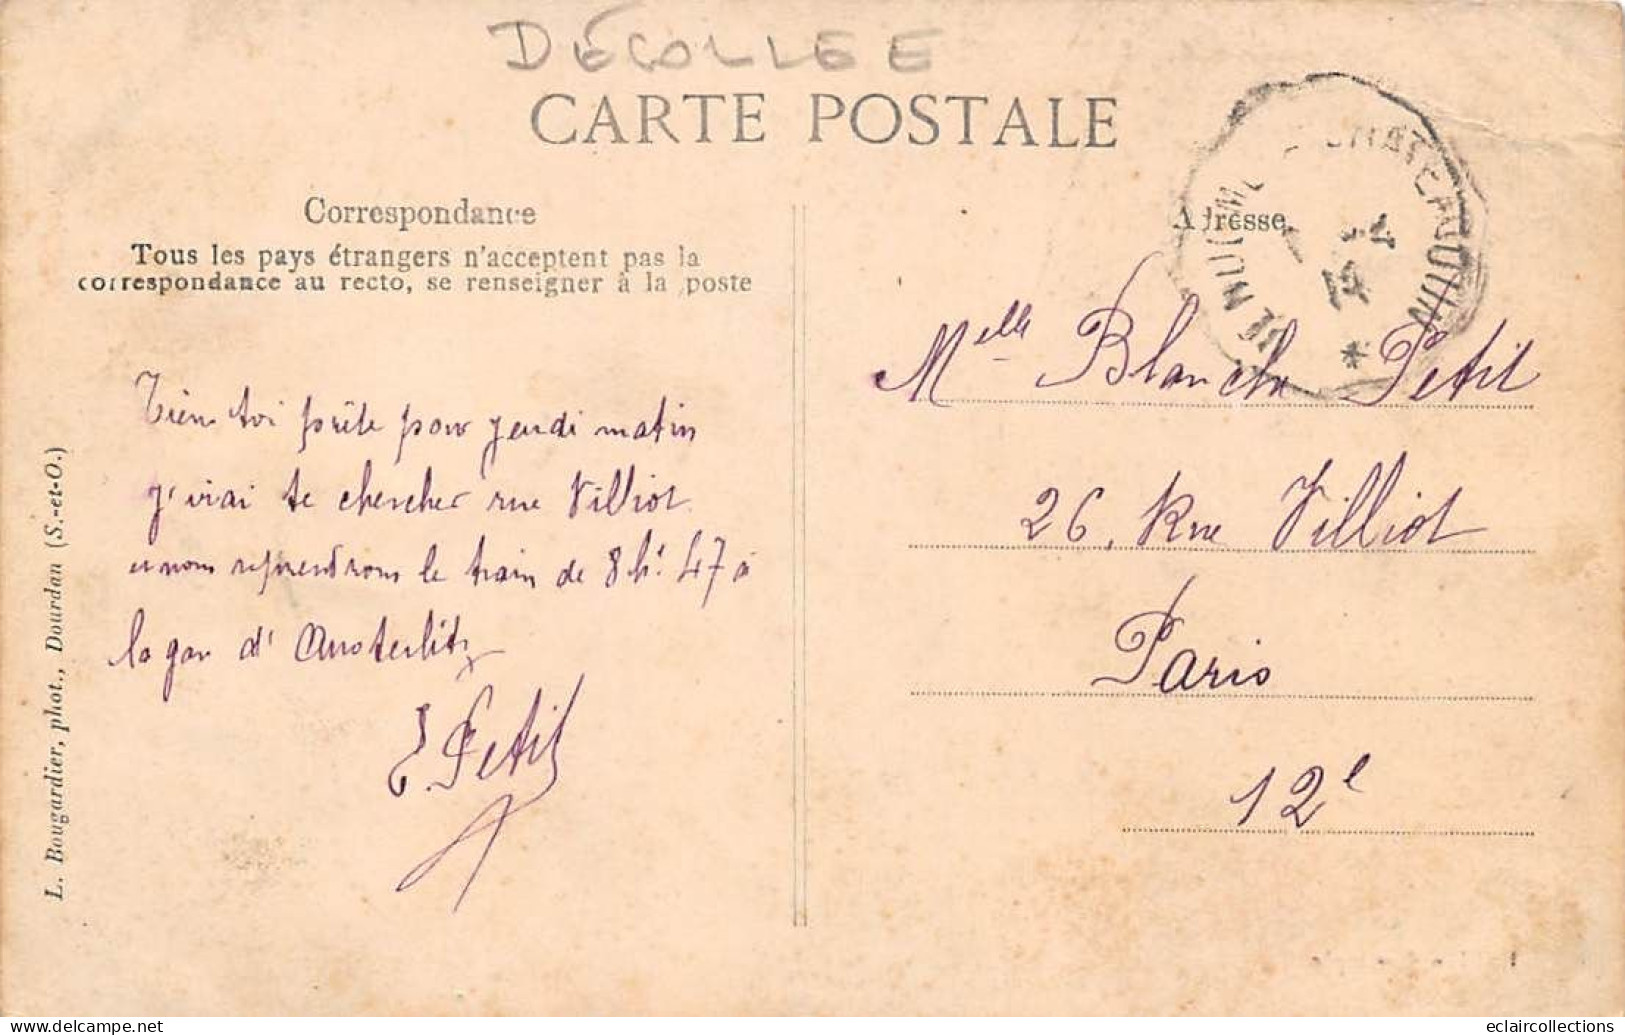 DÉCOLLÉE
CARTE POSTALE
Correspondance
Tous les pays étrangers n'acceptent pas la
correspondance au recto, se renseigner à la poste
Adresse
Tiens toi prête pour jeudi matin
j'irai te chercher rue Villiot
nous reprendrons le train de 8 h. 47 à
la gare d'Austerlitz
E. Petit
Melle Blanche Petit
26, Rue Villiot
Paris
12e
L. Bougardier, phot., Dourdan (S.-et-O.)
eclaircollections